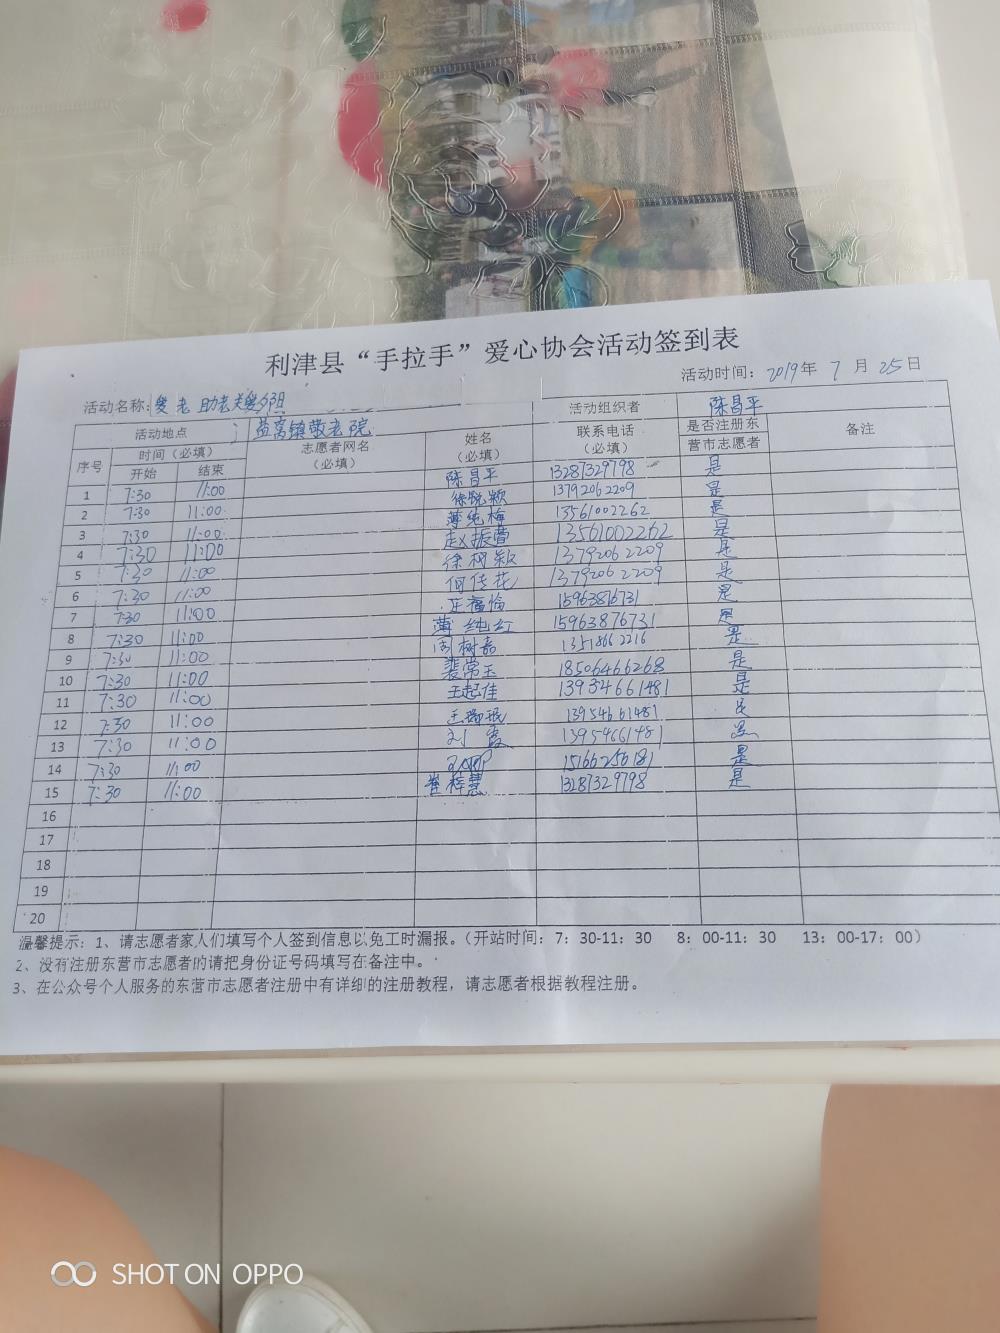 利津县“手拉手”爱心协会活动签到表
活动时间：2019年 7 月 25日
活动名称：爱老 助老 关爱夕阳
活动组织者 陈昌平
活动地点 益寿镇敬老院
序号 时间（必填） 志愿者网名（必填） 姓名（必填） 联系电话（必填） 是否注册东营市志愿者 备注
开始 结束
1 7:30 11:00 陈昌平 13287329798 是
2 7:30 11:00 徐悦颖 13792062209 是
3 7:30 11:00 薄纯梅 13561002262 是
4 7:30 11:00 赵振营 13561002262 是
5 7:30 11:00 徐树颖 13792062209 是
6 7:30 11:00 何传花 13792062209 是
7 7:30 11:00 是
8 7:30 11:00 薄纯红 15963876731 是
9 7:30 11:00 周树嘉 13518662216 是
10 7:30 11:00 裴常玉 18506466268 是
11 7:30 11:00 王起佳 13954661481 是
12 7:30 11:00 13954661481 是
13 7:30 11:00 刘霞 13954661481 是
14 7:30 11:00 15166256181 是
15 7:30 11:00 崔梓慧 13287329798 是
16
17
18
19
20
温馨提示：1、请志愿者家人们填写个人签到信息以免工时漏报。（开站时间：7：30-11：30 8：00-11：30 13：00-17：00）
2、没有注册东营市志愿者的请把身份证号码填写在备注中。
3、在公众号个人服务的东营市志愿者注册中有详细的注册教程，请志愿者根据教程注册。
SHOT ON OPPO